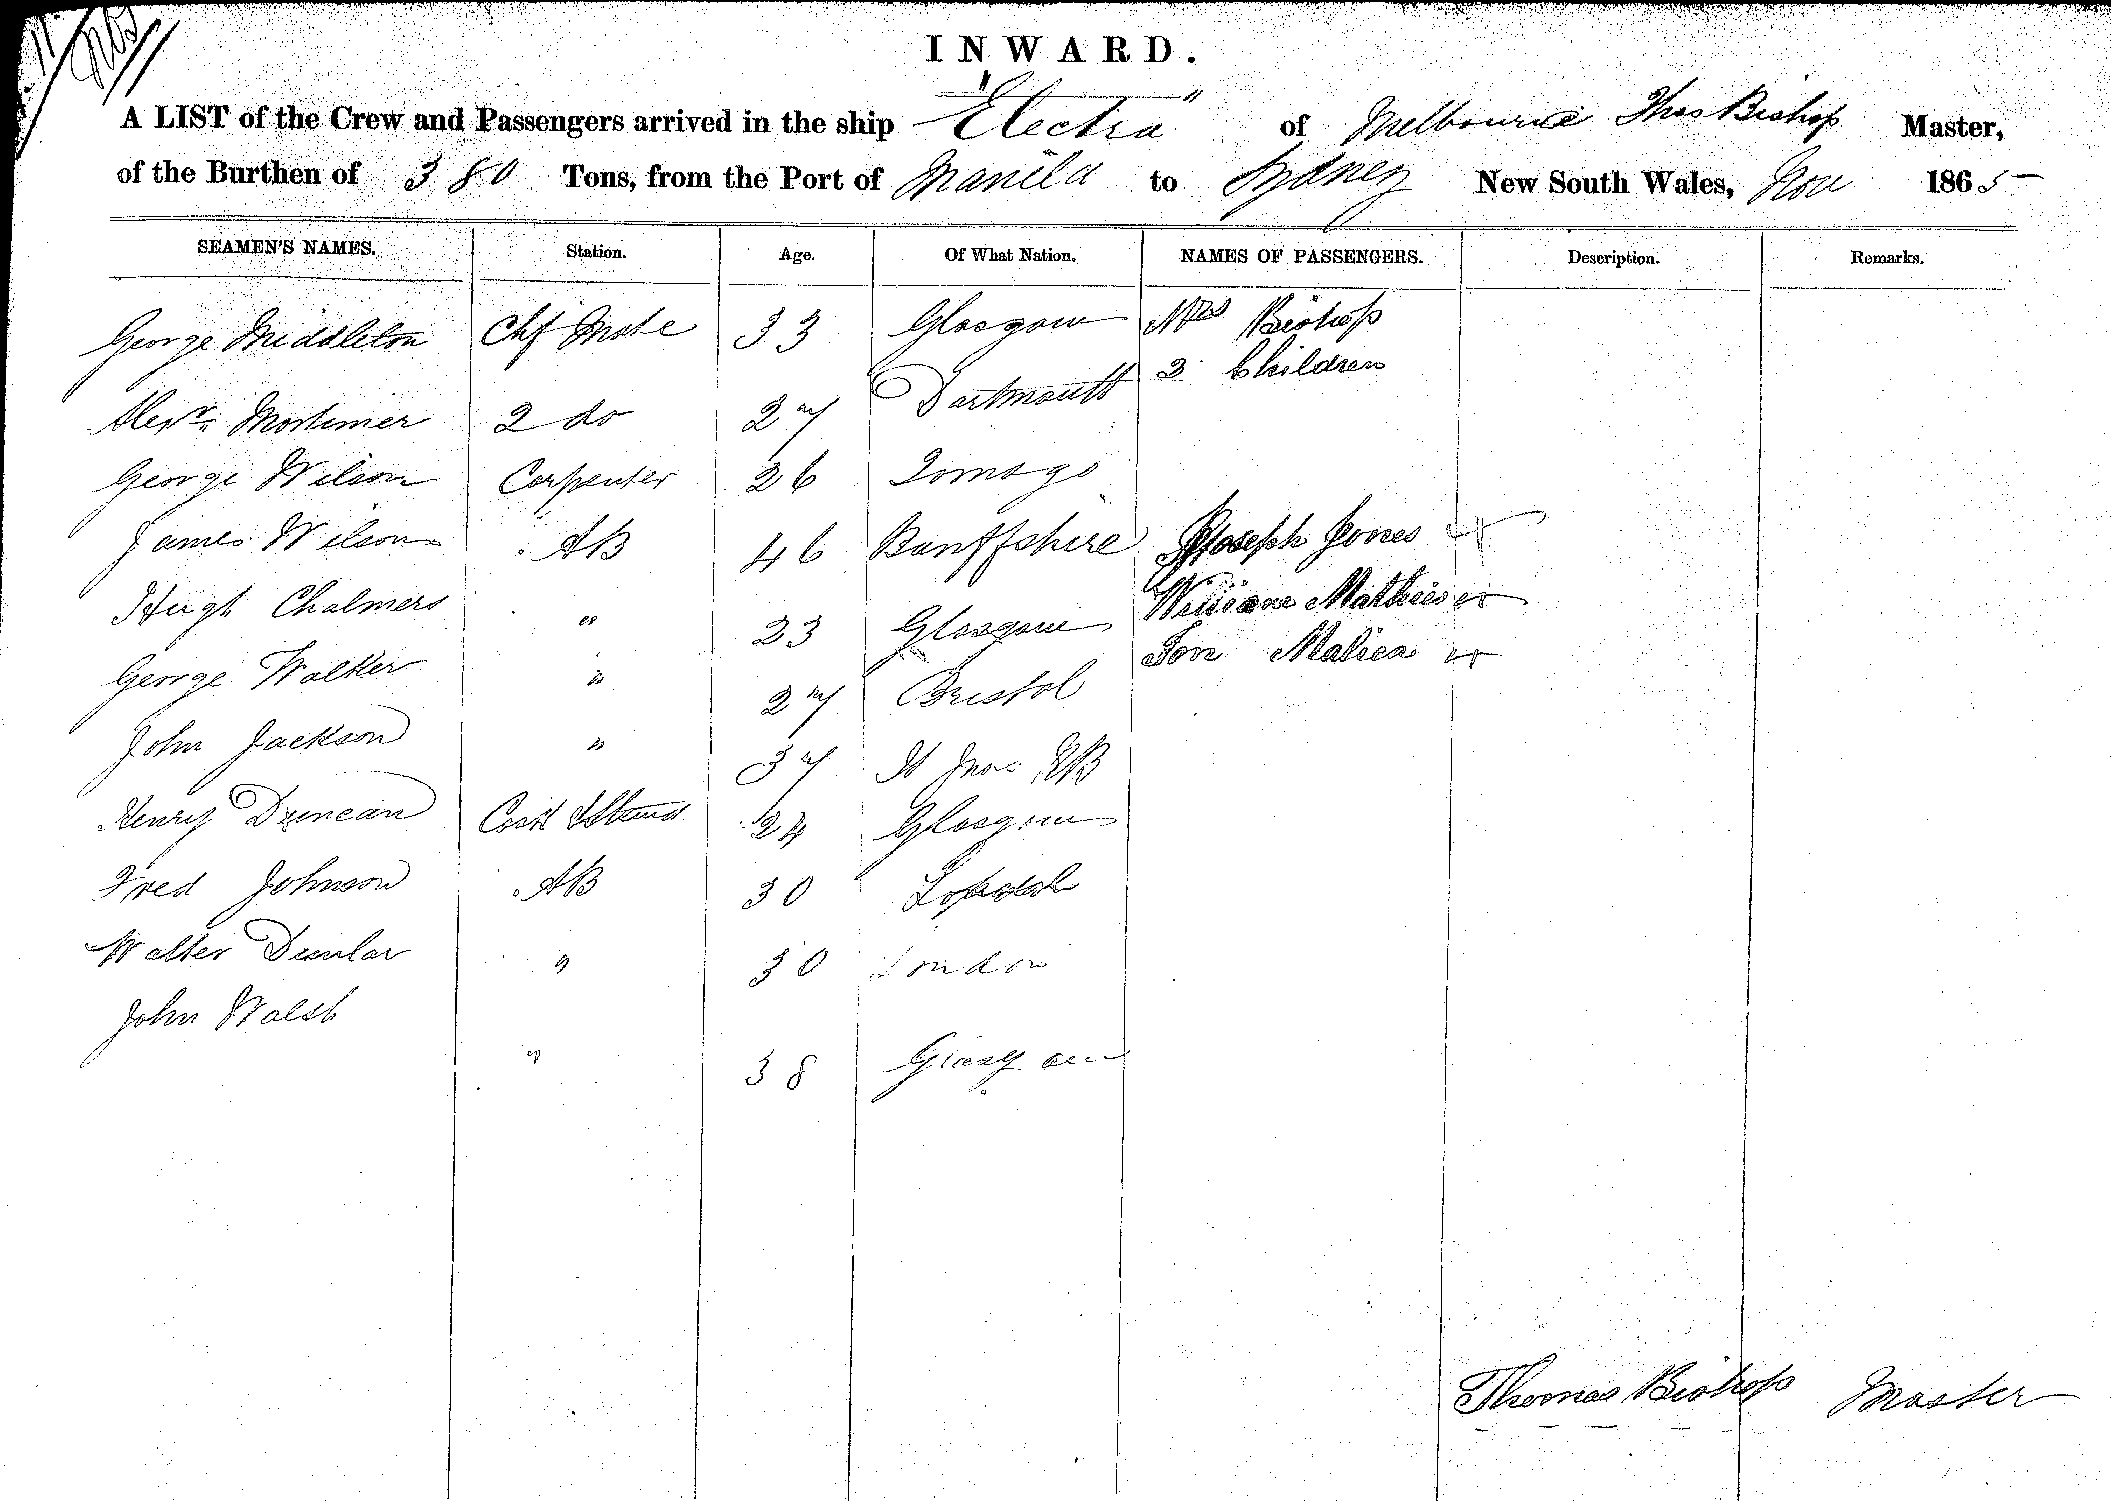 INWARD.
A LIST of the Crew and Passengers arrived in the ship "Electra" of Melbourne Thos Bishop Master,
of the Burthen of 380 Tons, from the Port of Manila to Sydney New South Wales, Nov 1865
SEAMEN'S NAMES. Station. Age. Of What Nation. NAMES OF PASSENGERS. Description. Remarks.
George Middleton Chf Mate 33 Glasgow Mrs Bishop
3 Children
Alexr Mortimer 2 do 27 Dartmouth
George Wilson Carpenter 26
James Wilson AB 46 Banffshire Joseph Jones
Hugh Chalmers " 23 Glasgow William Mathies
George Walker " 27 Bristol Malica
John Jackson " 37 St NB
Henry Duncan Cook & Steward 24 Glasgow
Fred Johnson AB 30
Walter Dunlar " 30 London
John Walsh " 38 Glasgow
Thomas Bishop Master